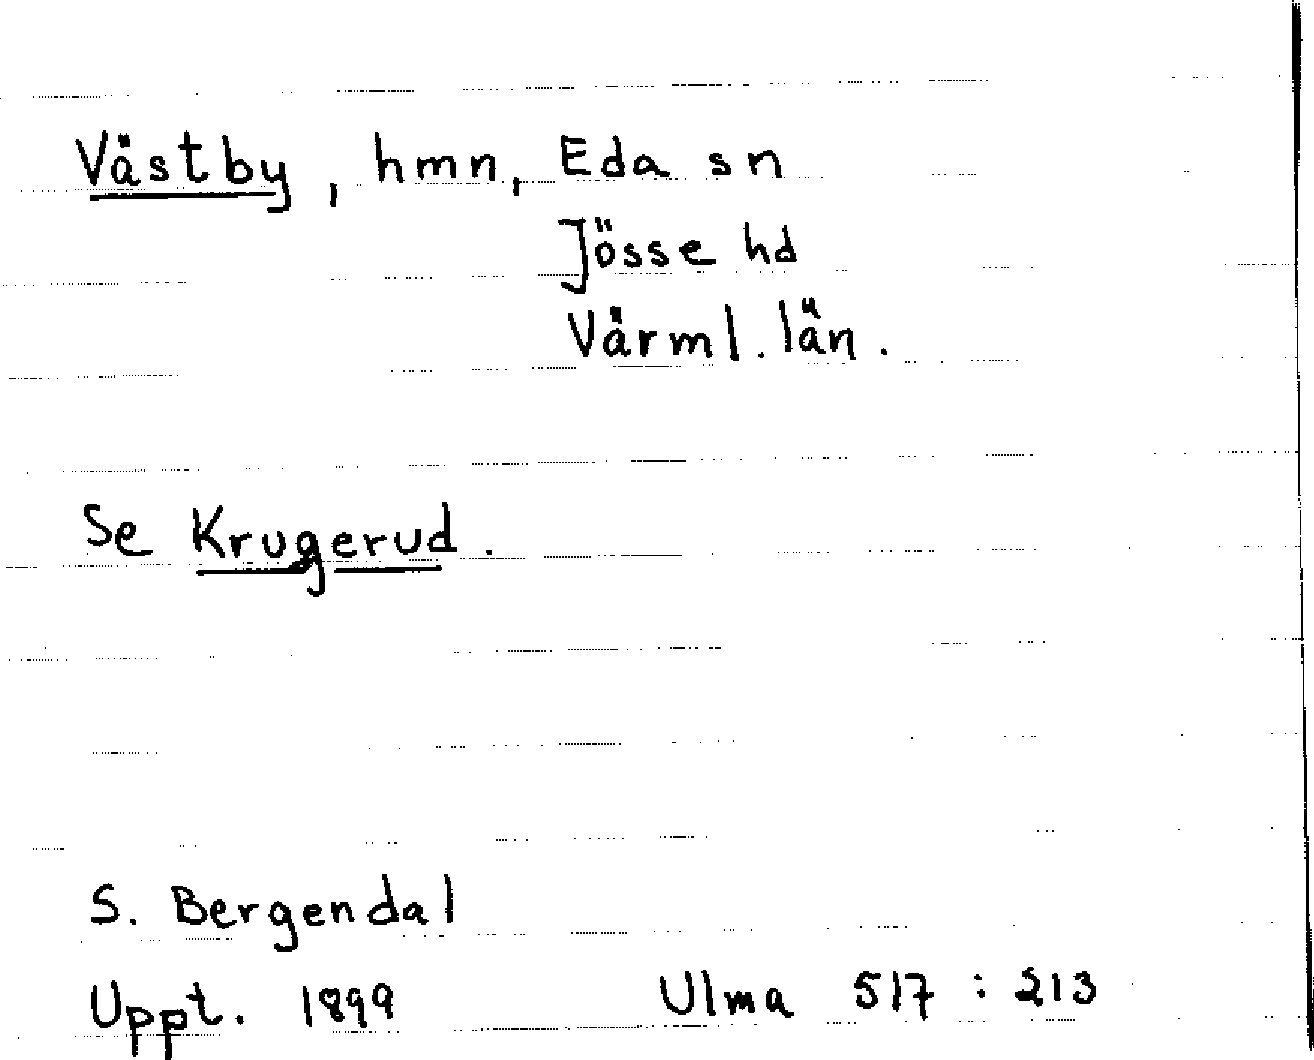 Västby, hmn, Eda sn
Jösse hd
Värml. län.
Se Krugerud.
S. Bergendal
Uppt. 1899 Ulma 517 : 213